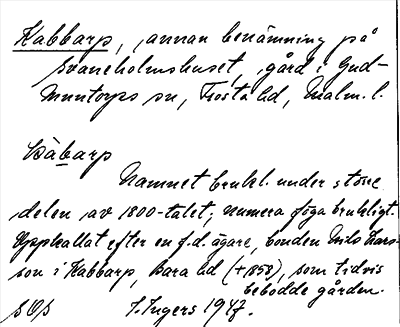 Kabbarp, annan benämning på
Svaneholmshuset, gård i Gud-
muntorps sn, Frosta hd, Malm. l.
Kàbarp
Namnet brukl. under större
delen av 1800-talet; numera föga brukligt.
Uppkallat efter en f.d. ägare, bonden Nils Lars-
son i Kabbarp, Bara hd (+1858), som tidvis
bebodde gården.
SOs I. Ingers 1947.